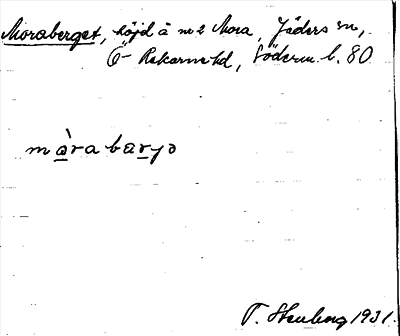 Moraberget, höjd å nr 2 Mora, Jäders sn,
Ö- Rekarne hd, Söderm. l. 80
màrabarjə
T. Stenberg 1931.